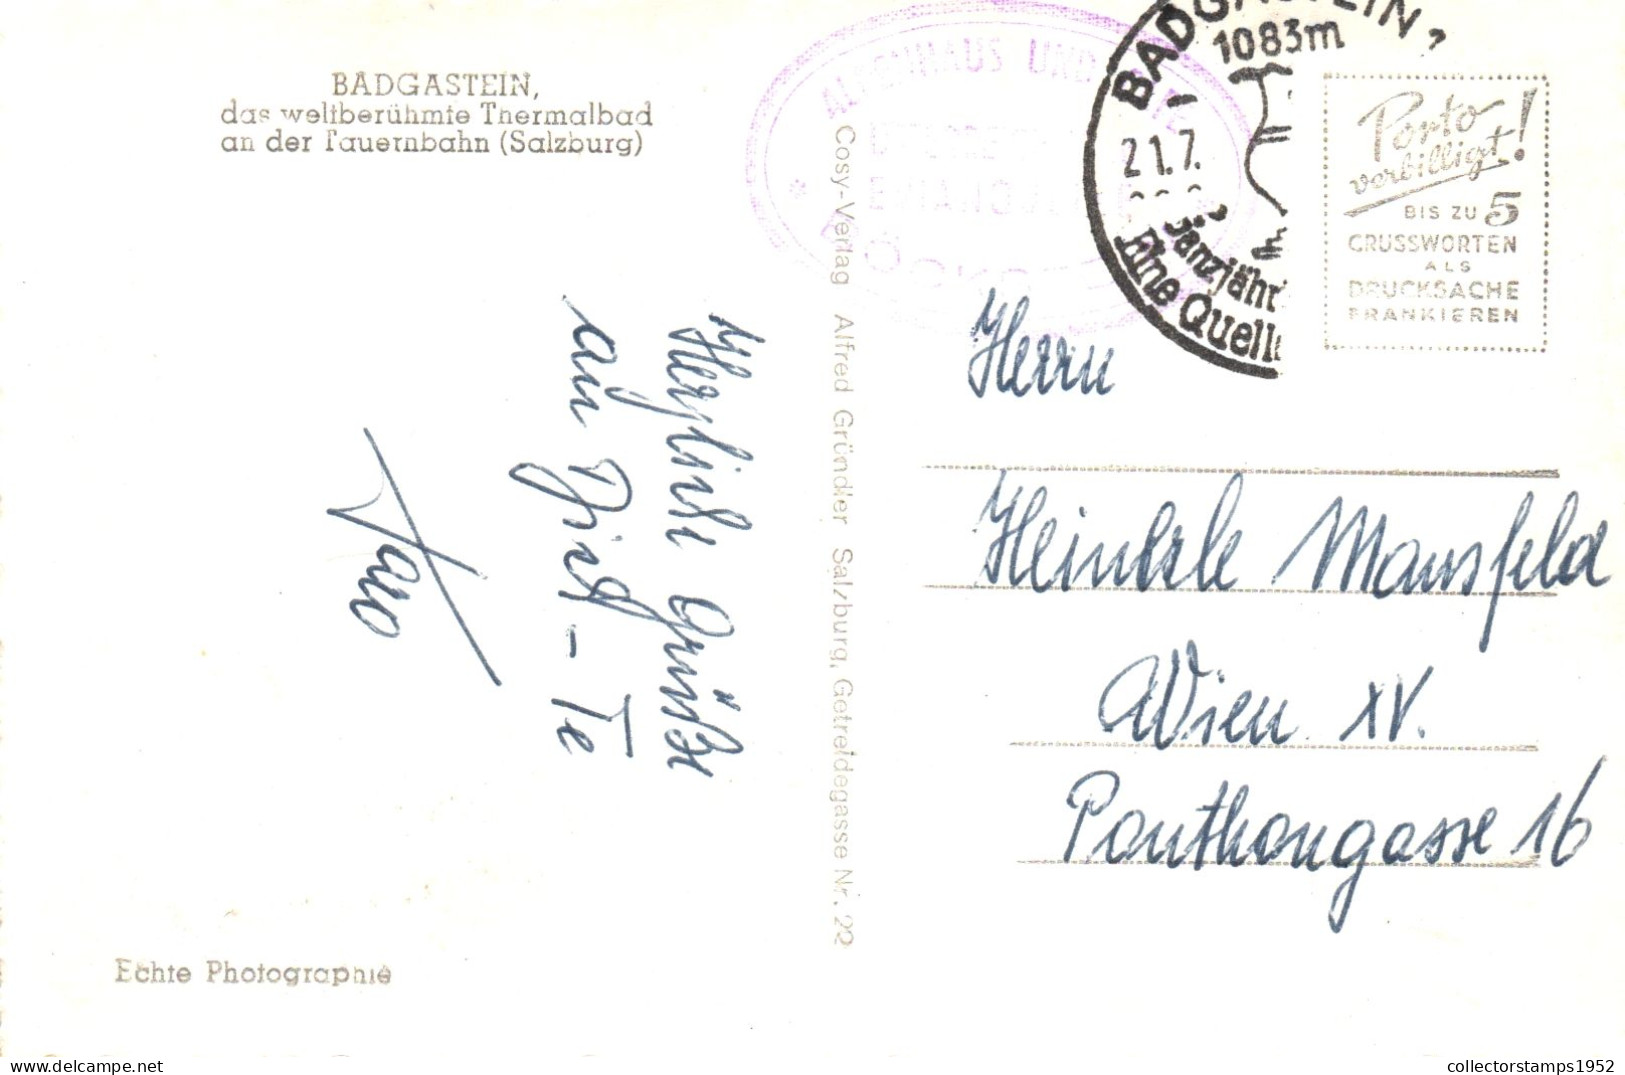 BADGASTEIN,
das weltberühmte Thermalbad
an der Tauernbahn (Salzburg)
Herzliche Grüße
an Dich - Te
Echte Photographie
Cosy-Verlag Alfred Gründler Salzburg, Getreidegasse Nr. 22
ALPENHAUS UND
BADGASTEIN
1083m
21.7.
Ganzjähr
Eine Quelle
Porto
verbilligt!
BIS ZU 5
GRUSSWORTEN
ALS
DRUCKSACHE
FRANKIEREN
Herrn
Mansfeld
Wien XV.
Pouthongasse 16
collectorstamps1952